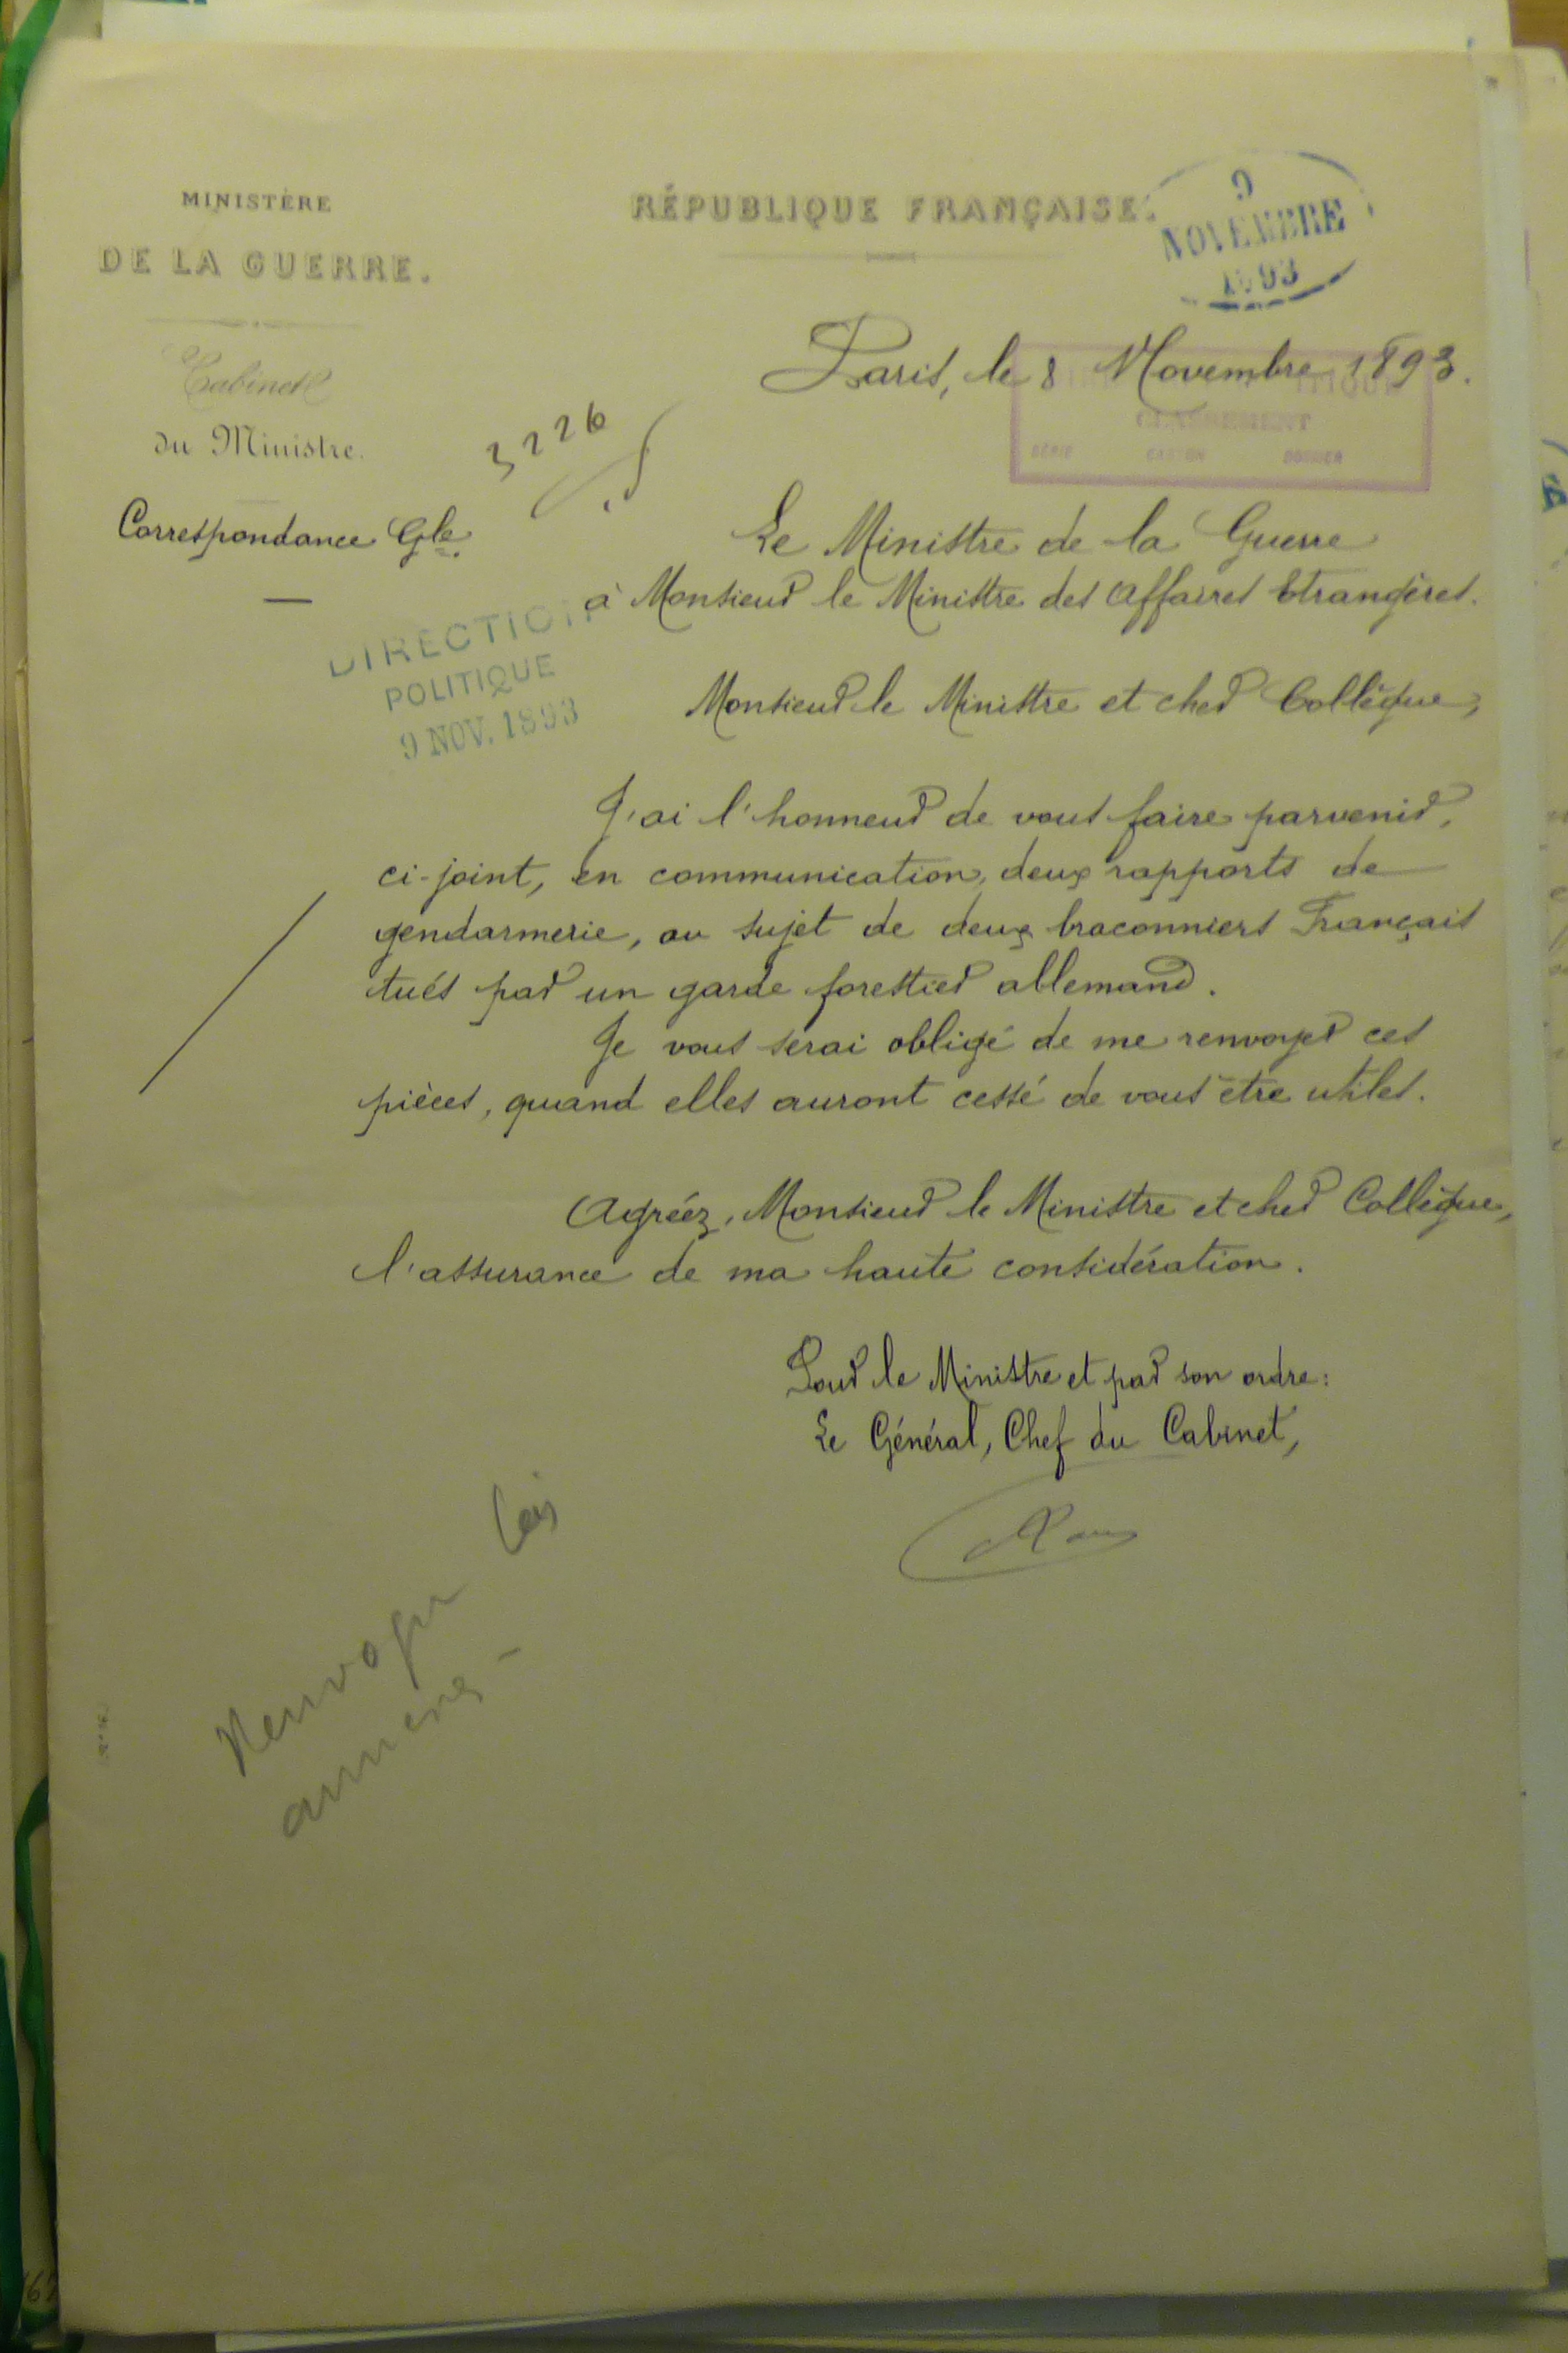 MINISTÈRE
DE LA GUERRE.
Cabinet
du Ministre.
Correspondance Gle.
RÉPUBLIQUE FRANÇAISE.
9
NOVEMBRE
1893
Paris, le 8 Novembre 1893.
CLASSEMENT
SÉRIE CARTON DOSSIER
3226
DIRECTION
POLITIQUE
9 NOV. 1893
Le Ministre de la Guerre
à Monsieur le Ministre des Affaires Etrangères.
Monsieur le Ministre et cher Collègue,
J'ai l'honneur de vous faire parvenir,
ci-joint, en communication, deux rapports de
gendarmerie, au sujet de deux braconniers Français
tués par un garde forestier allemand.
Je vous serai obligé de me renvoyer ces
pièces, quand elles auront cessé de vous être utiles.
Agréez, Monsieur le Ministre et cher Collègue,
l'assurance de ma haute considération.
Pour le Ministre et par son ordre:
Le Général, Chef du Cabinet,
Renvoyer les
annexes -